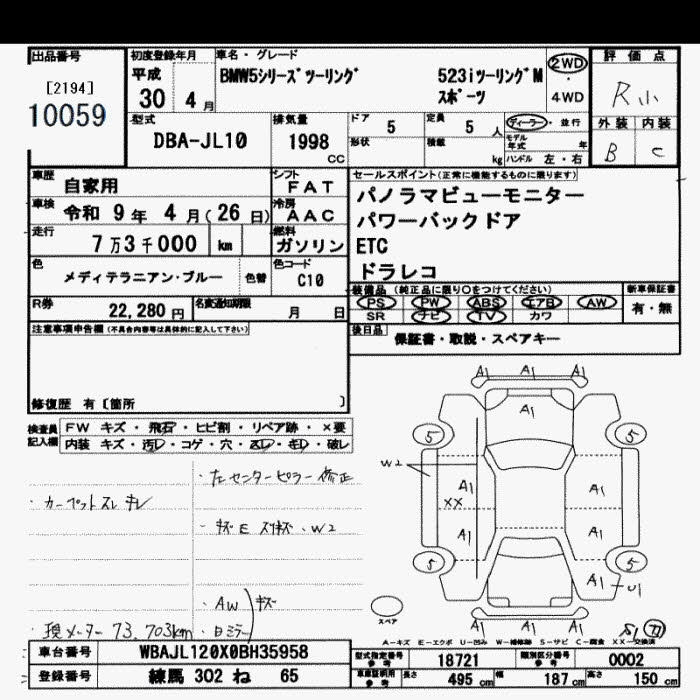 出品番号
[2194]
10059
初度登録年月
平成
30 4 月
車名・グレード
BMW5シリーズツーリング 523iツーリングM
スポーツ
2WD
・
4WD
評価点
R小
外装 内装
B C
型式
DBA-JL10
排気量
1998
CC
ドア 5
定員 5 人
形状
積載 kg
ディーラー・並行
モデル年式 年
ハンドル 左・右
車歴 自家用
シフト FAT
車検 令和 9 年 4 月(26 日)
冷房 AAC
走行 7 万 3 千000 km
燃料 ガソリン
色 メディテラニアン・ブルー 色替
色コード C10
R券 22,280 円
名変通知期限 月 日
セールスポイント(正常に機能するものに限ります)
パノラマビューモニター
パワーバックドア
ETC
ドラレコ
装備品 (純正品に限り○をつけてください)
PS PW ABS エアB AW
SR ナビ TV カワ
新車保証書
有・無
後日品
保証書・取説・スペアキー
注意事項申告欄(不具合内容等は具体的に記入して下さい)
修復歴 有〔箇所 〕
検査員記入欄
FW キズ・飛石・ヒビ割・リペア跡・×要
内装 キズ・汚レ・コゲ・穴・スレ・キレ・破レ
・左センターピラー修正
・カーペットスレ キレ
・キズ E スリキズ・W2
・AW キズ
・現メーター 73,703km
・日ミラー
A1 A1 A1
A1
5 5
W2
A1
XX
A1
A1
A1
5 5
A1
A1
U1
A1 A1 A1
スペア
A-キズ E-エクボ U-凹み W-補修跡 S-サビ C-腐食 XX-交換済
車台番号 WBAJL120X0BH35958
登録番号 練馬 302 ね 65
型式指定番号 参考 18721
類別区分番号 参考 0002
車庫証明用 参考
長さ 495 cm
幅 187 cm
高さ 150 cm